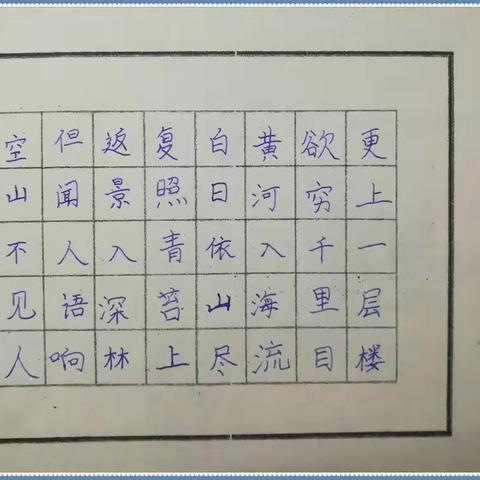 空山不见人
但闻人语响
返景入深林
复照青苔上
白日依山尽
黄河入海流
欲穷千里目
更上一层楼